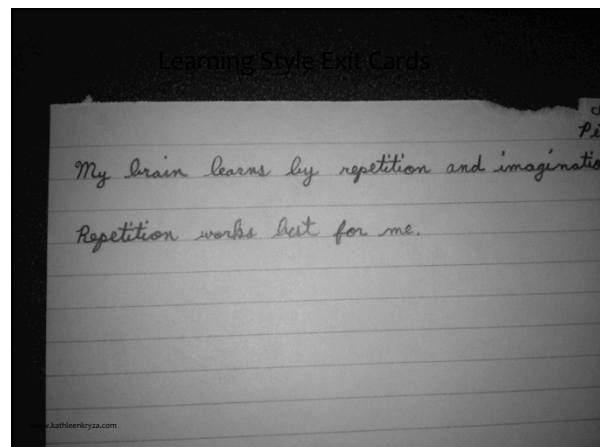 Learning Style Exit Cards
My brain learns by repetition and
Repetition works best for me.
www.kathleenkryza.com